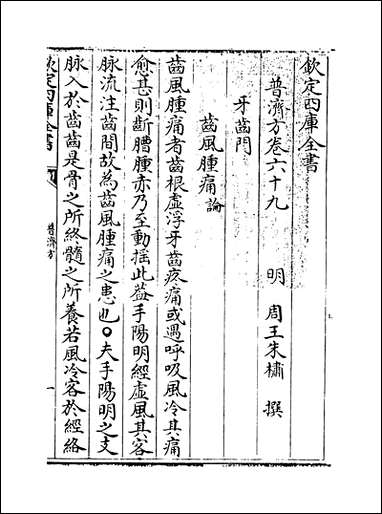 欽定四庫全書
普濟方卷六十九　明　周王朱橚　撰
牙齒門
齒風腫痛論
齒風腫痛者齒根虛浮牙齒疼痛或遇呼吸風冷其痛
愈甚則斷腫腫亦乃至動搖此葢手陽明經虛風其客
脉流注齒間故為齒風腫痛之患也○夫手陽明之支
脉入於齒齒是骨之所終髓之所養若風冷客於經絡
欽定四庫全書
普濟方
一